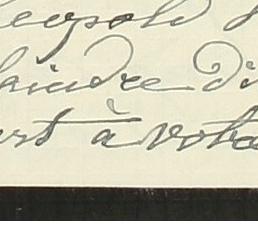 eopold
laindre d'u
ert à votre